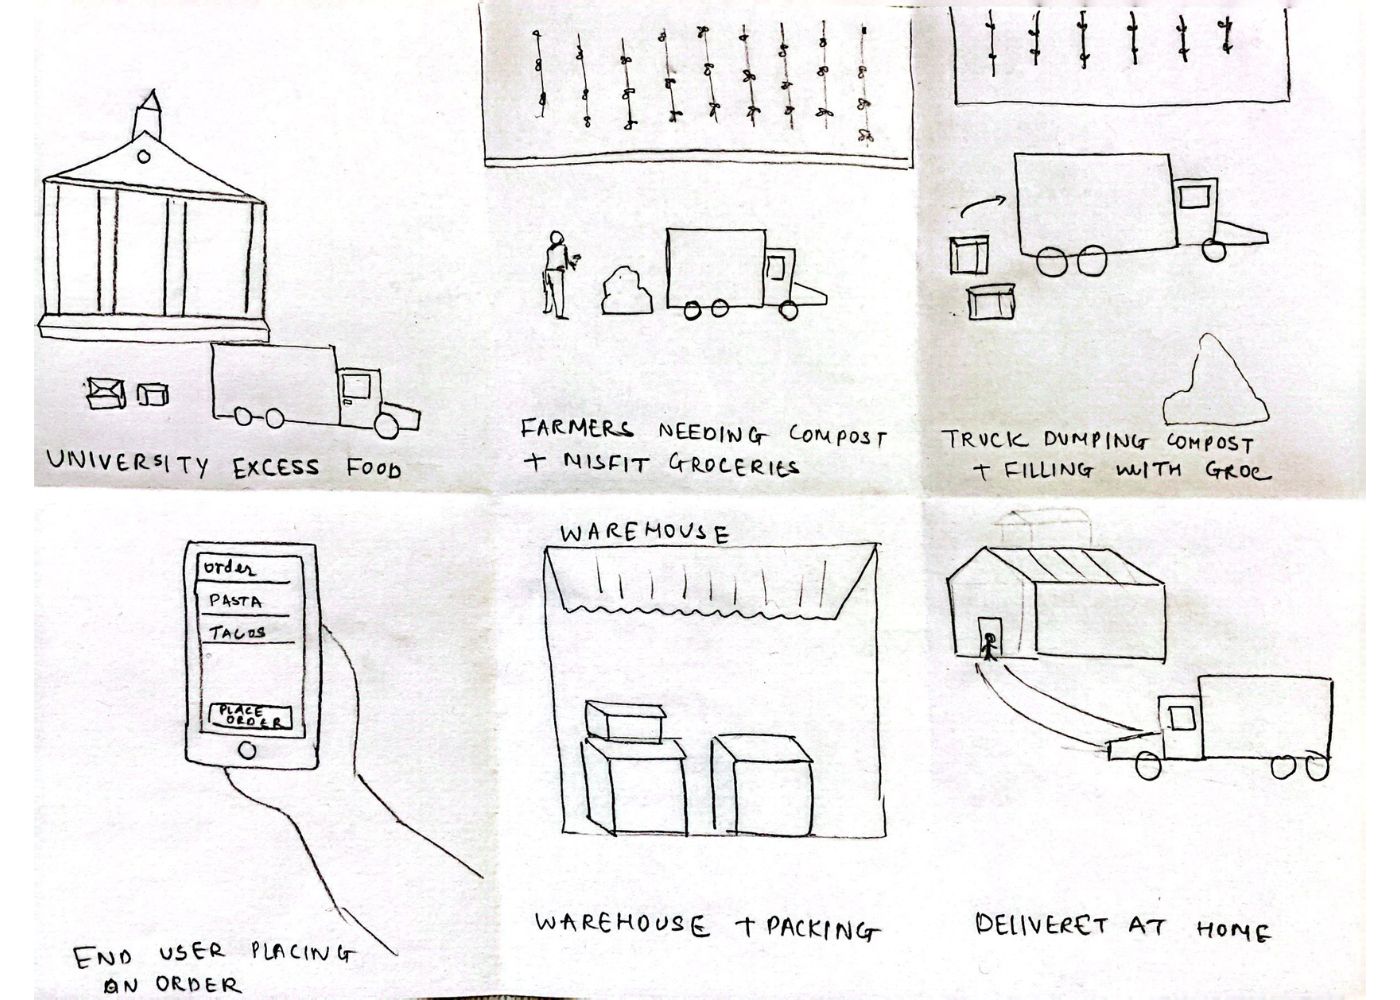 UNIVERSITY EXCESS FOOD
FARMERS NEEDING COMPOST
+ MISFIT GROCERIES
TRUCK DUMPING COMPOST
+ FILLING WITH GROC
order
PASTA
TACOS
PLACE
ORDER
END USER PLACING
AN ORDER
WAREHOUSE
WAREHOUSE + PACKING
DELIVERET AT HOME